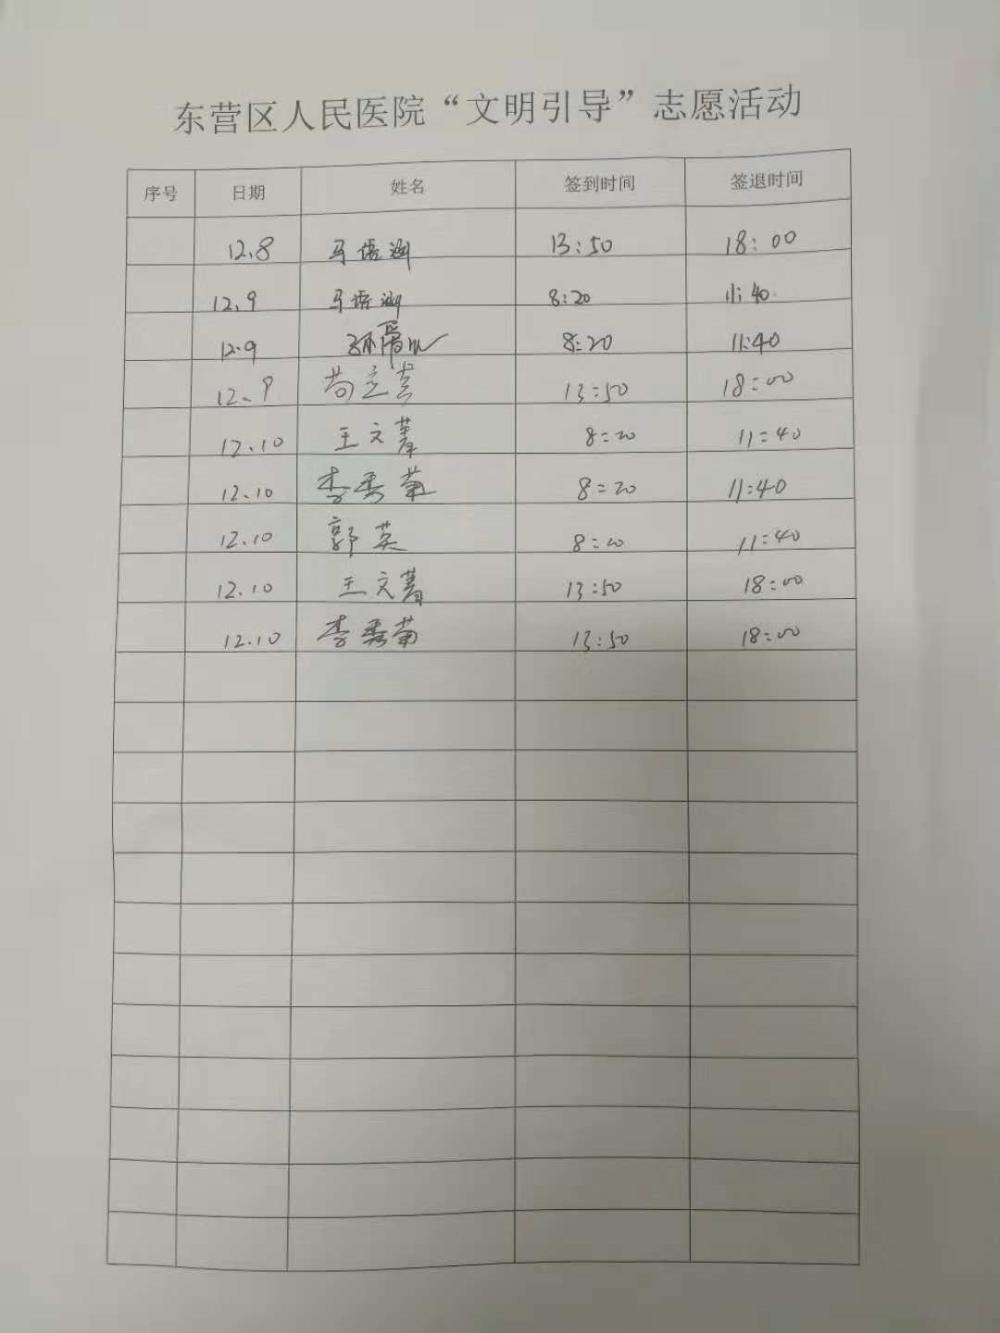 东营区人民医院“文明引导”志愿活动
序号 日期 姓名 签到时间 签退时间
12.8 马 13:50 18:00
12.9 马 8:20 11:40
12.9 孙 8:20 11:40
12.9 尚立 13:50 18:00
12.10 王文菁 8:20 11:40
12.10 李秀菊 8:20 11:40
12.10 郭英 8:20 11:40
12.10 王文菁 13:50 18:00
12.10 李秀菊 13:50 18:00